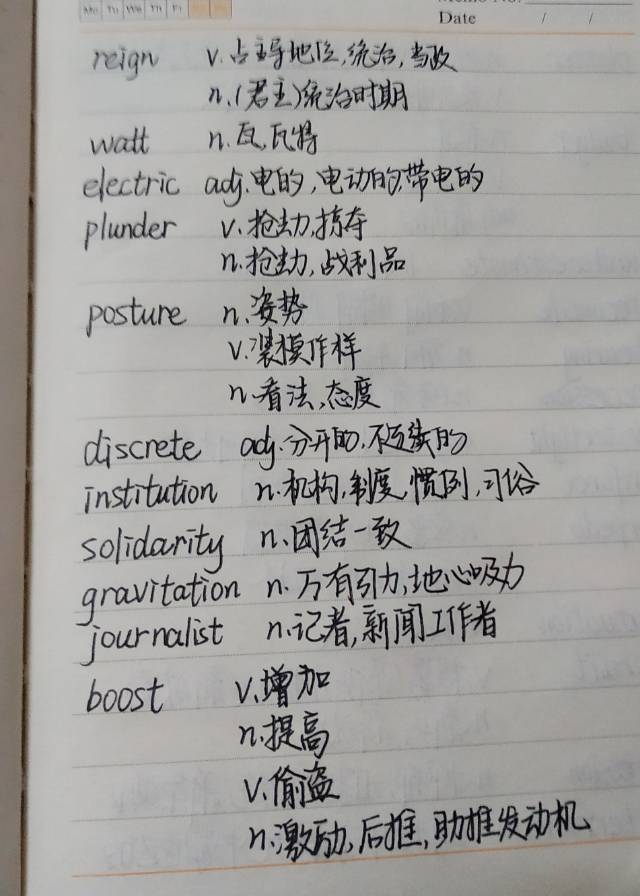 Mo Tu We Th Fr
Memo No.
Date / /
reign v.占主导地位,统治,当政
n.(君主)统治时期
watt n.瓦,瓦特
electric adj.电的,电动的,带电的
plunder v.抢劫,掠夺
n.抢劫,战利品
posture n.姿势
v.装模作样
n.看法,态度
discrete adj.分开的,不连续的
institution n.机构,制度,惯例,习俗
solidarity n.团结一致
gravitation n.万有引力,地心吸力
journalist n.记者,新闻工作者
boost v.增加
n.提高
v.偷盗
n.激励,后推,助推发动机